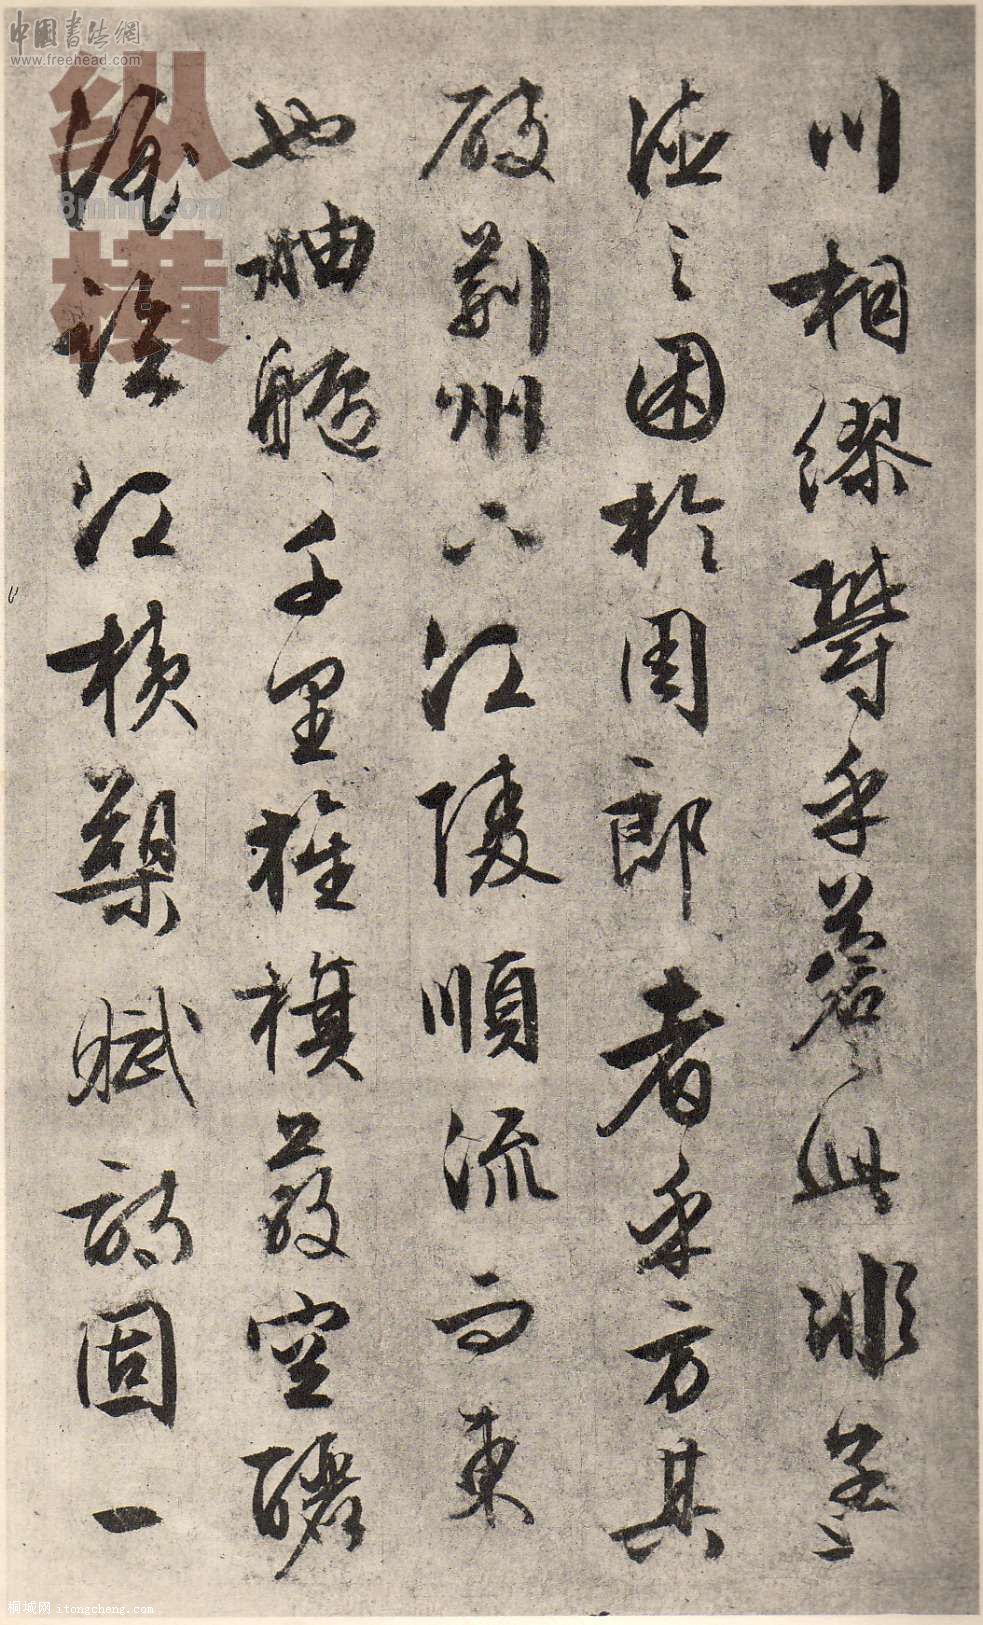 中國书法網
www.freehead.com
纵横
8mhh.com
川相繆鬱乎蒼〻此非孟
德之困於周郎者乎方其
破荊州下江陵順流而東
也舳艫千里旌旗蔽空釃
酒臨江橫槊賦詩固一
桐城网 itongcheng.com